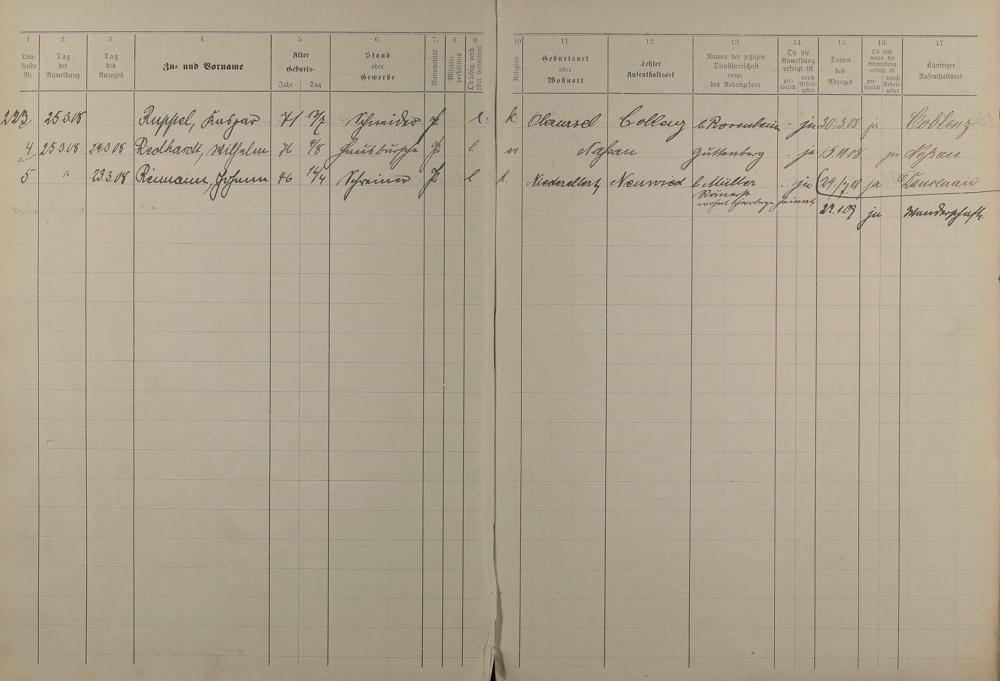 1. 2. 3. 4. 5. 6. 7. 8. 9. 10. 11. 12. 13. 14. 15. 16. 17.
Laufende Nr. Tag der Anmeldung Tag des Anzuges Zu- und Vorname Alter Geburts- Jahr Tag Stand oder Gewerbe Nationalität Militärverhältnis Ob ledig, verh. oder verwitwet Religion Geburtsort oder Wohnort Letzter Aufenthaltsort Namen der jetzigen Dienstherrschaft resp. des Arbeitgebers Ob die Anmeldung erfolgt ist persönlich durch Arbeitgeber Datum des Abzuges Ob und wann die Abmeldung erfolgt ist persönlich durch Arbeitgeber Künftiger Aufenthaltsort
223 25 3.08 Ruppel, Kaspar 71 Schneider P. l. k Collenz b. Rosenheim - ja 30.3.08 ja Coblenz
4 25.3.08 24.3.08 Redhardt, Wilhelm 76 9/8 Hausbursche P. l Nassau Guttenberg - ja 15.11.08 ja Nassau
5 " 23.3.08 Reumann, Johann 46 14/4 Schreiner P. l k. Neuwied b. Müller - ja ja
23.1.09 ja Wanderschaft.